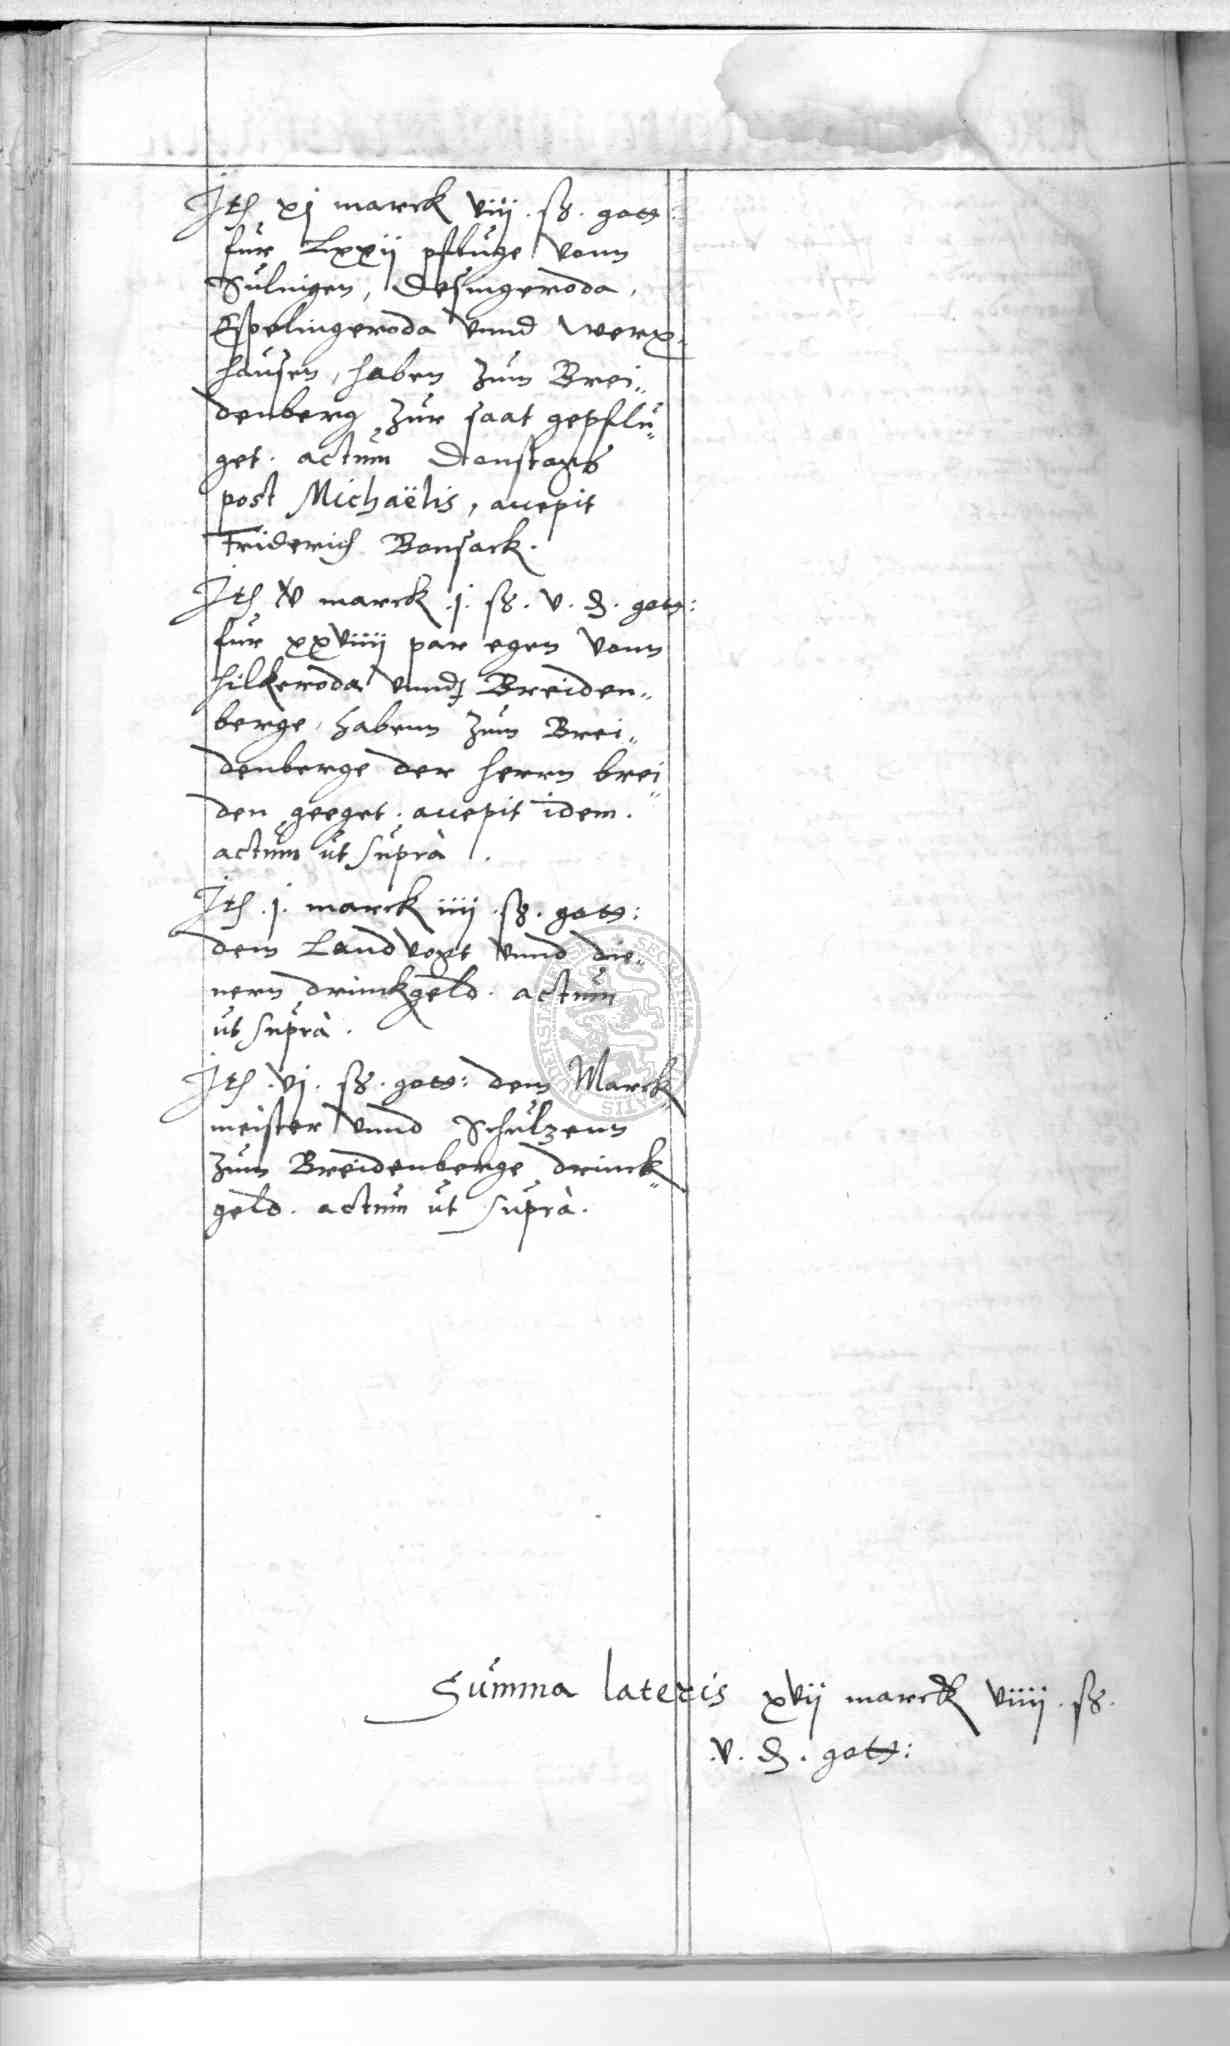 Jtem xj marck viiij . ß . gott:
fur Lxxij pfluge vonn
Sulnigen, Desingeroda,
Espelingeroda vnnd Werx„
hausen, haben zum Brei„
denberg zur saat gepflu„
get. actum Donstags
post Michaëlis, accepit
Friderich Bonsack.
Jtem iv marck .j. ß . v . ₰ . gott:
fur xxviiij par egen vonn
Hilkeroda vnnd Breiden„
berge, habenn zum Brei„
denberge der herrn brei„
den geeget. accepit idem.
actum ut suprà.
Jtem .j. marck iiij . ß . gott:
dem Landvogt vnnd die„
nern drinckgeld. actum
ut suprà.
Jtem .vj. ß . gott: dem Marck„
meister vnnd Schulzenn
zum Breidenberge drinck„
geld. actum ut suprà.
Summa lateris xvij marck viiij . ß .
.v. ₰ . gott:
DUDERSTADIENSIS SECRETUM